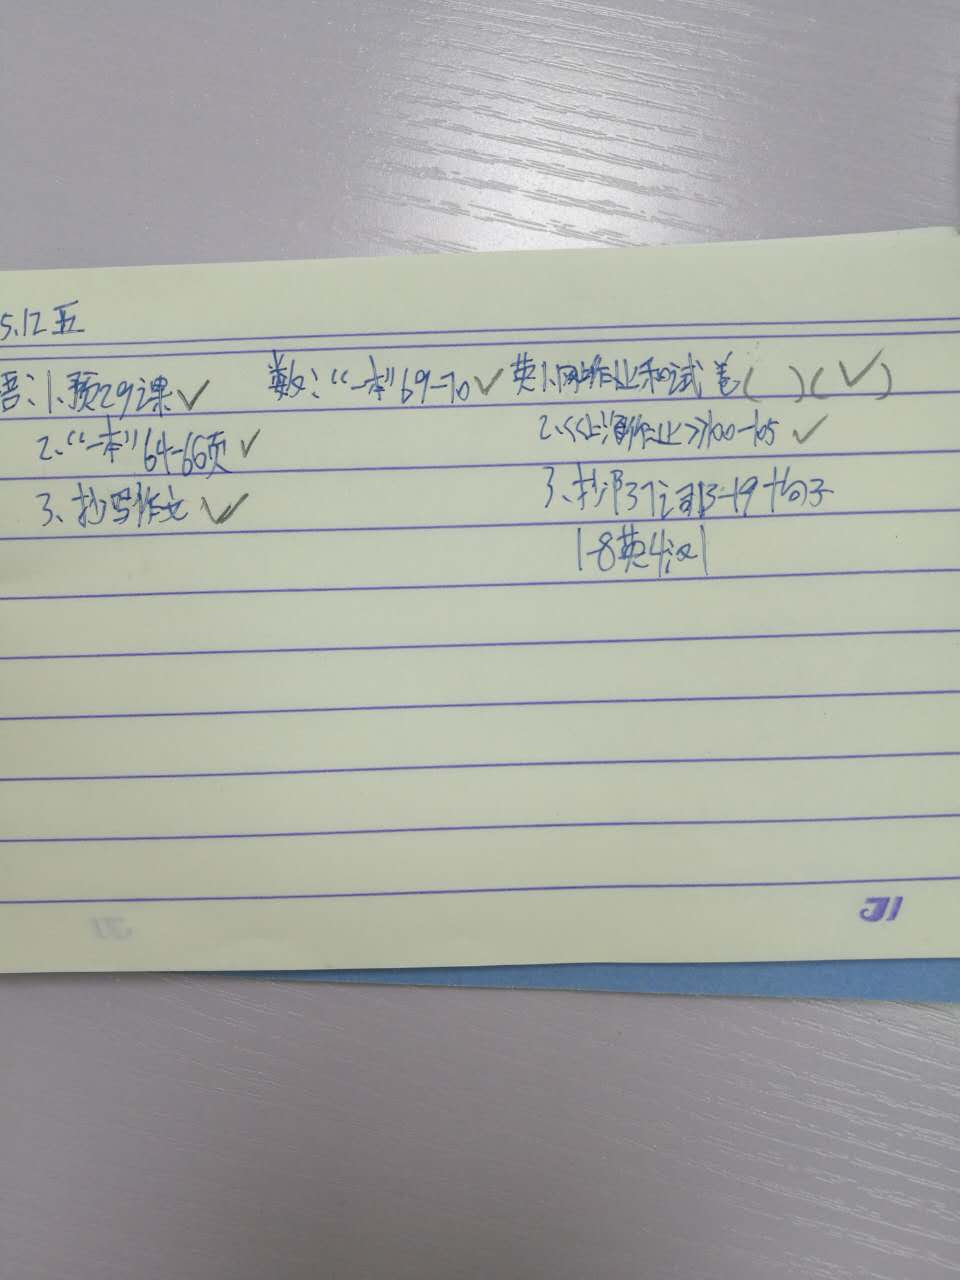 5.12 五
语:1.预29课✓ 数:“一本”69-70✓ 英1.网上作业和试卷( )(✓)
2.“一本”64-66页✓ 2.《上海作业》100-105✓
3、抄写作文✓ 3、抄 37词13-19+句子
1-8英4汉1